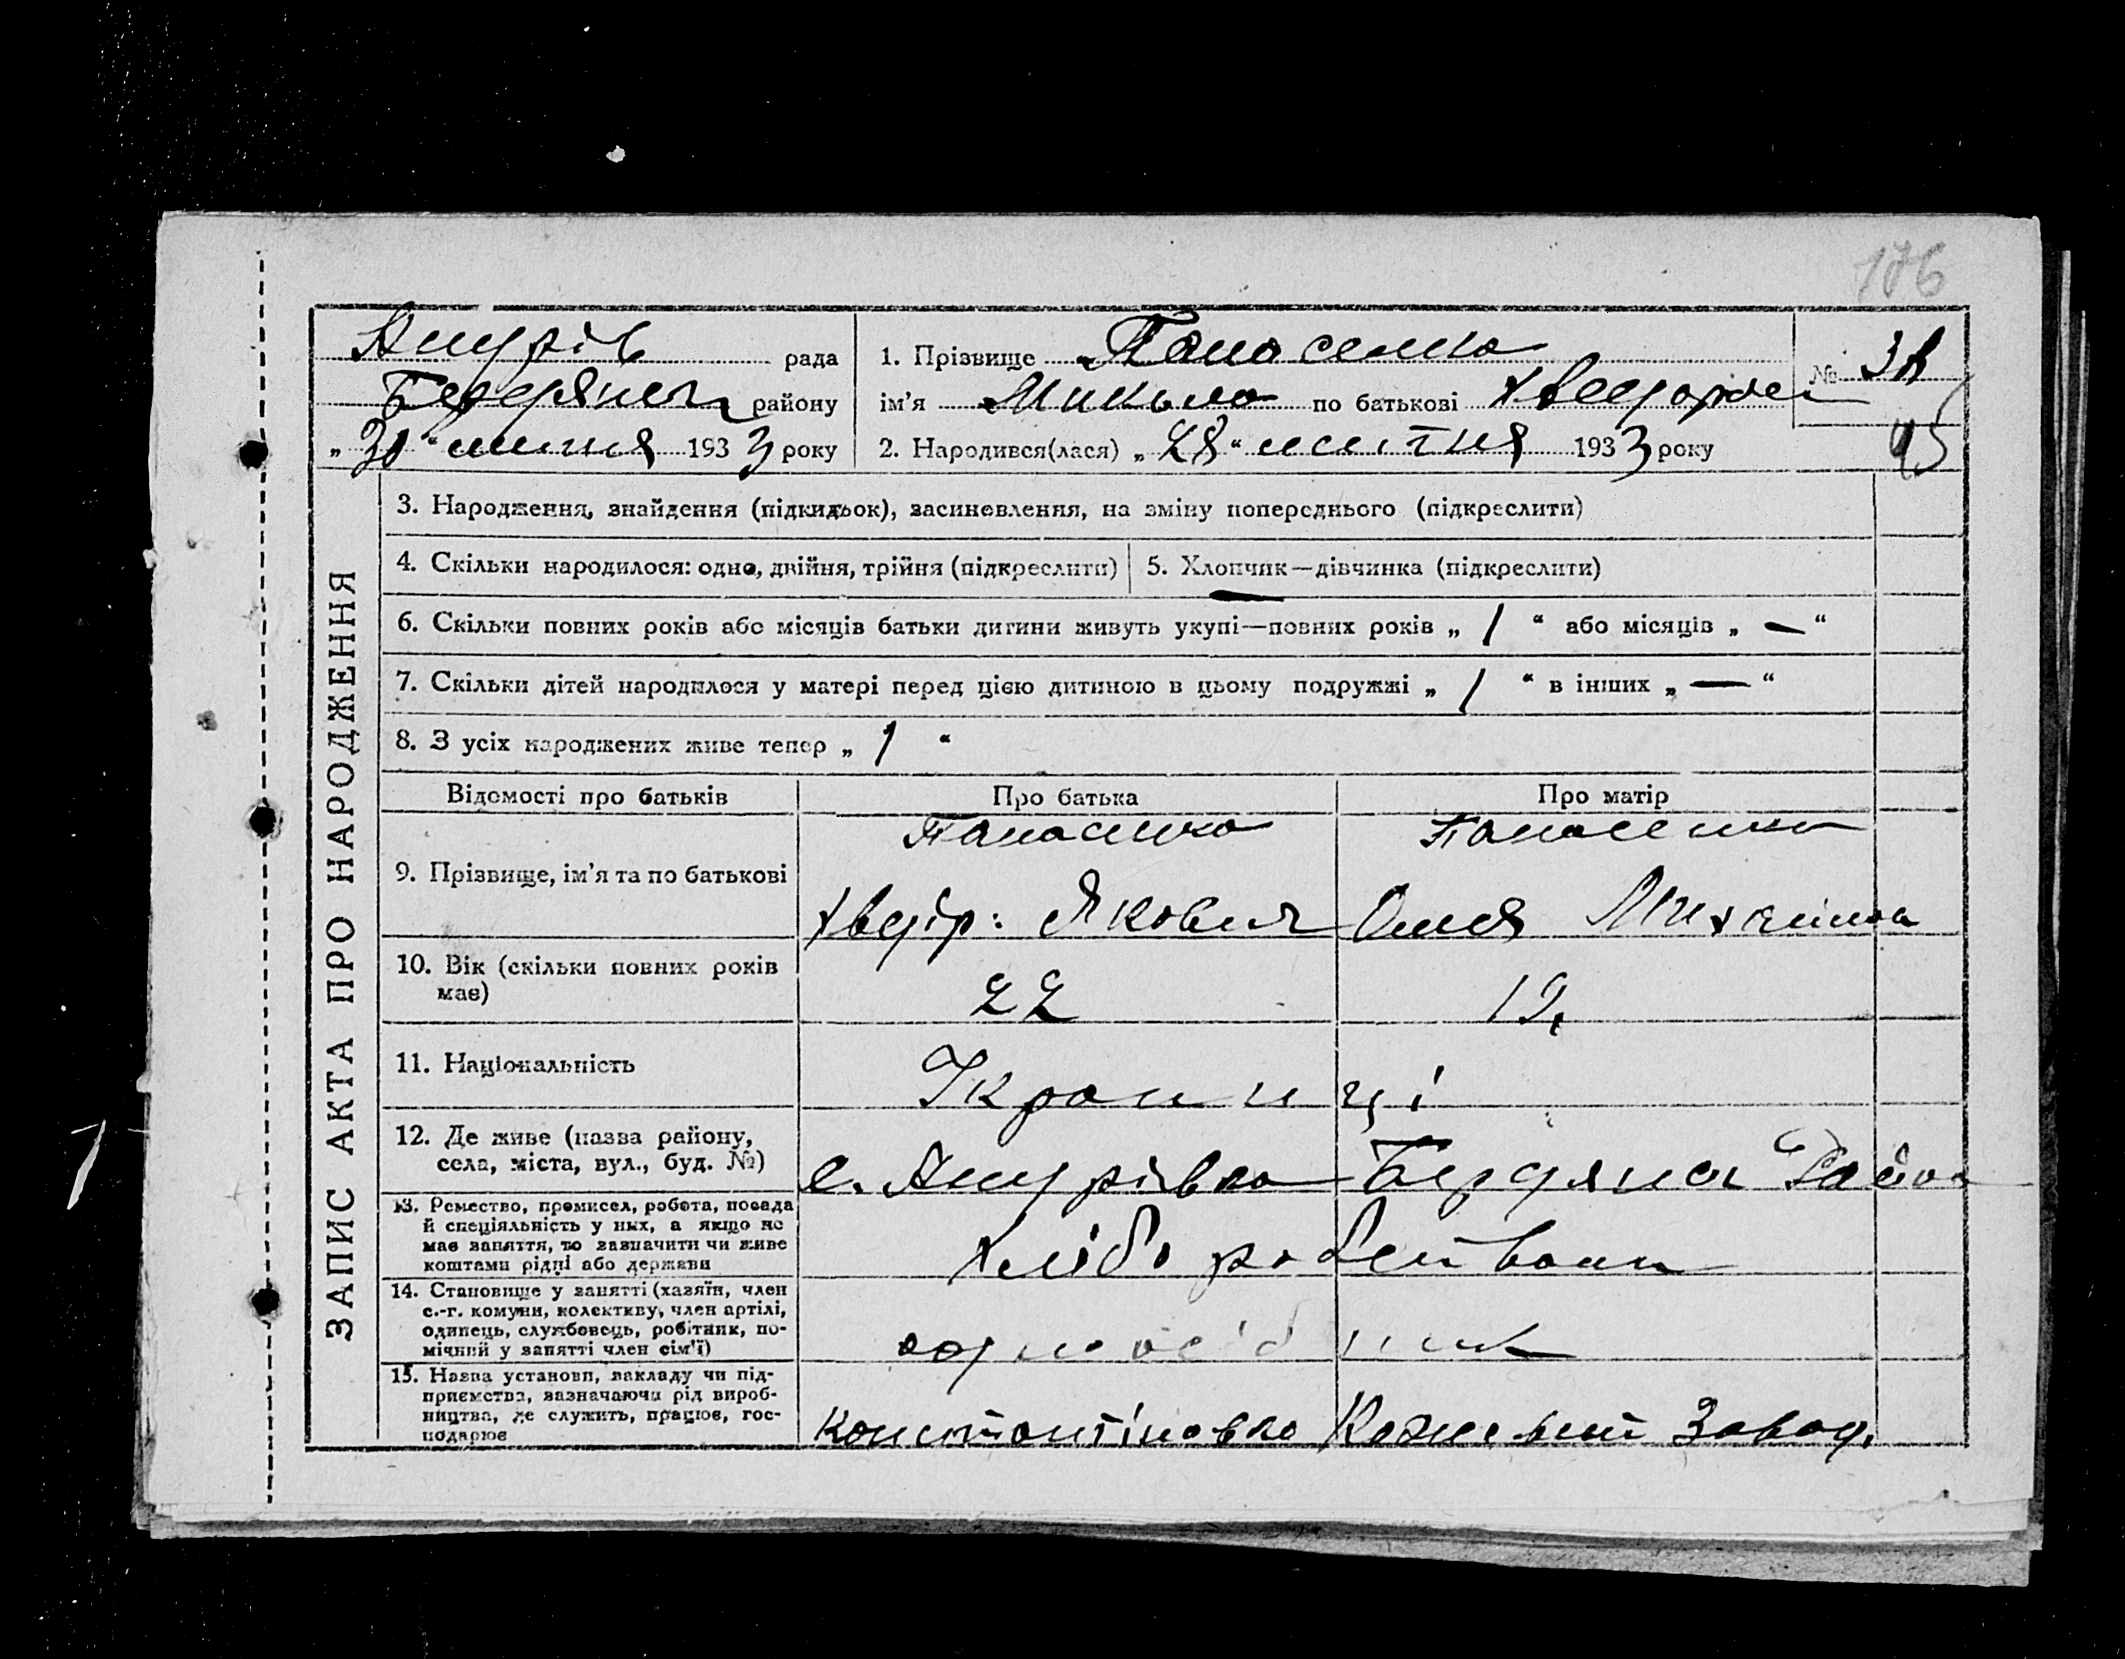 176
Анурів рада
Бердянськ району
„30“ липня 1933 року
1. Прізвище Панасенко
ім’я Микола по батькові Хведоров
№ 38
45
2. Народився(лася) „28“ липня 1933 року
ЗАПИС АКТА ПРО НАРОДЖЕННЯ
3. Народження, знайдення (підкидьок), засиновлення, на зміну попереднього (підкреслити)
4. Скільки народилося: одно, двійня, трійня (підкреслити)
5. Хлопчик—дівчинка (підкреслити)
6. Скільки повних років або місяців батьки дитини живуть укупі—повних років „ 1 “ або місяців „ — “
7. Скільки дітей народилося у матері перед цією дитиною в цьому подружжі „ 1 “ в інших „ — “
8. З усіх народжених живе тепер „ 1 “
Відомості про батьків
Про батька
Про матір
9. Прізвище, ім’я та по батькові
Панасенко
Панасенко
Хведір: Якович
Оля Михайлов
10. Вік (скільки повних років
має)
22
19
11. Національність
Українці
12. Де живе (назва району,
села, міста, вул., буд. №)
с. Анурівка Бердянськ Район
13. Ремество, промисел, робота, посада
й спеціяльність у них, а якщо не
має заняття, то зазначити чи живе
коштами рідні або держави
Хліборобством
14. Становище у занятті (хазяїн, член
с.-г. комуни, колективу, член артілі,
одинець, службовець, робітник, по-
мічний у занятті член сім’ї)
одноосібник
15. Назва установи, закладу чи під-
приємства, зазначаючи рід вироб-
ництва, де служить, працює, гос-
подарює
Константіновка Завод.